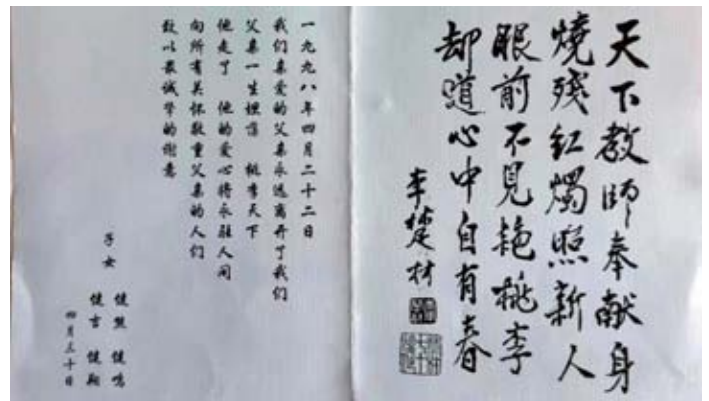 天下教師奉献身
燒殘紅燭照新人
眼前不見艳桃李
却道心中自有春
李楚材
一九九八年四月二十二日
我们亲爱的父亲永远离开了我们
父亲一生坦荡 桃李天下
他走了 他的爱心将永驻人间
向所有关怀敬重父亲的人们
致以最诚挚的谢意
子女 健鸣
健吉 健翔
四月三十日